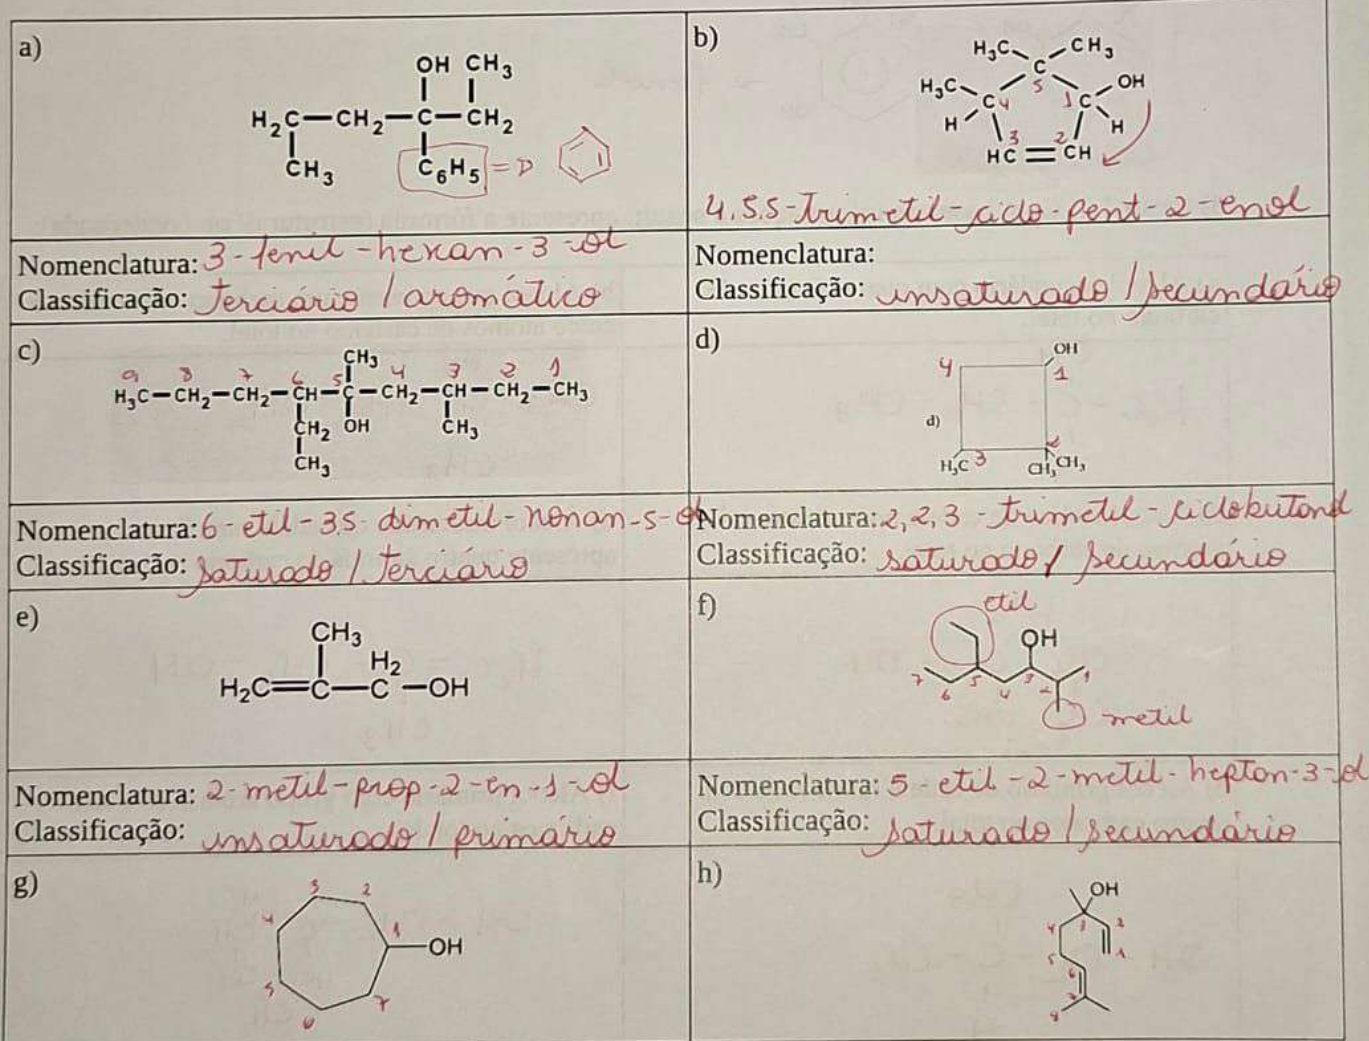 a)
OH CH3
H2C—CH2—C—CH2
CH3 C6H5 = D
Nomenclatura: 3-fenil-hexan-3-ol
Classificação: Terciário / aromático
b)
H3C CH3
C
5
H3C C 4 1 C OH
H H
3 2
HC = CH
4,5,5-trimetil-ciclo-pent-2-enol
Nomenclatura:
Classificação: insaturado / secundário
c)
CH3
9 8 7 6 5 4 3 2 1
H3C—CH2—CH2—CH—C—CH2—CH—CH2—CH3
CH2 OH CH3
CH3
Nomenclatura: 6-etil-3,5-dimetil-nonan-5-ol
Classificação: saturado / Terciário
d)
OH
4 1
d)
2
H3C 3 CH3 CH3
Nomenclatura: 2,2,3-trimetil-ciclobutanol
Classificação: saturado / secundário
e)
CH3
H2
H2C=C—C—OH
Nomenclatura: 2-metil-prop-2-en-1-ol
Classificação: insaturado / primário
f)
etil
OH
7 6 5 4 3 2 1
metil
Nomenclatura: 5-etil-2-metil-heptan-3-ol
Classificação: saturado / secundário
g)
3 2
4 1 OH
5 7
6
h)
OH
4 3 2
5 1
6
7
8